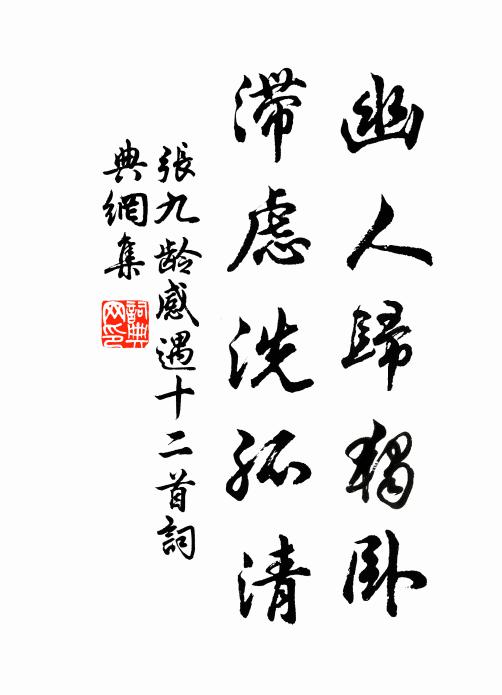 幽人歸獨卧
滞慮洗孤清
張九龄感遇十二首詞
典網集
詞典网印